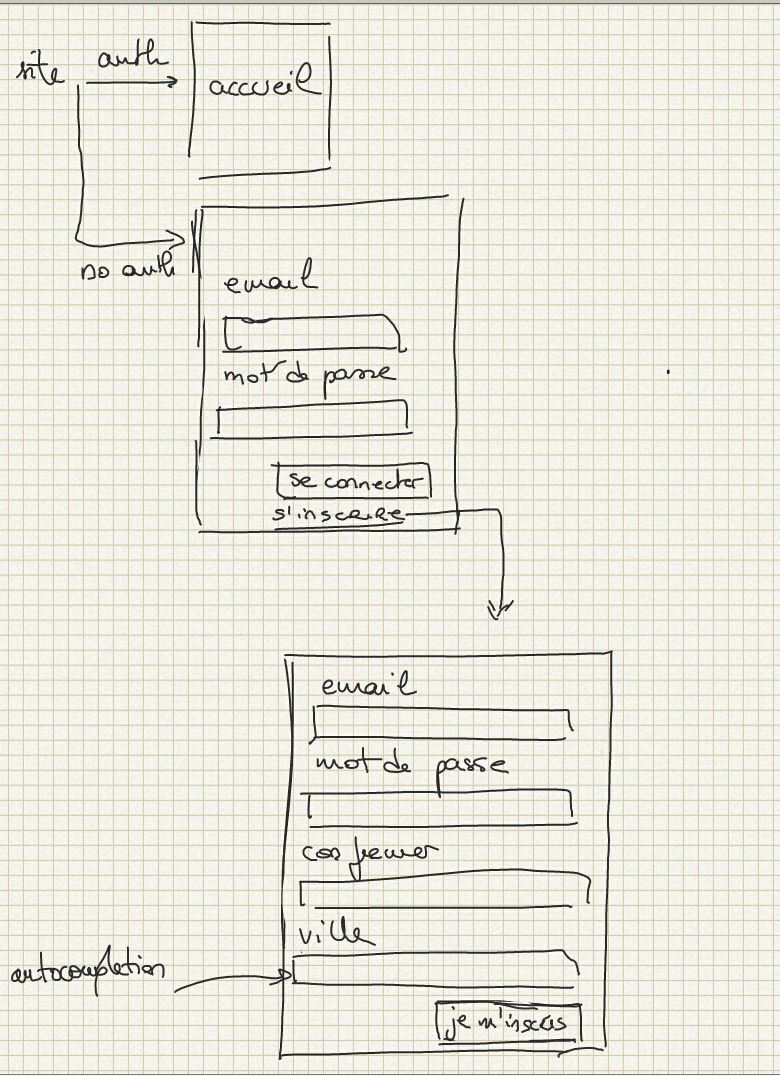 site
auth
accueil
no auth
email
mot de passe
se connecter
s'inscrire
email
mot de passe
confirmer
ville
autocompletion
je m'inscris